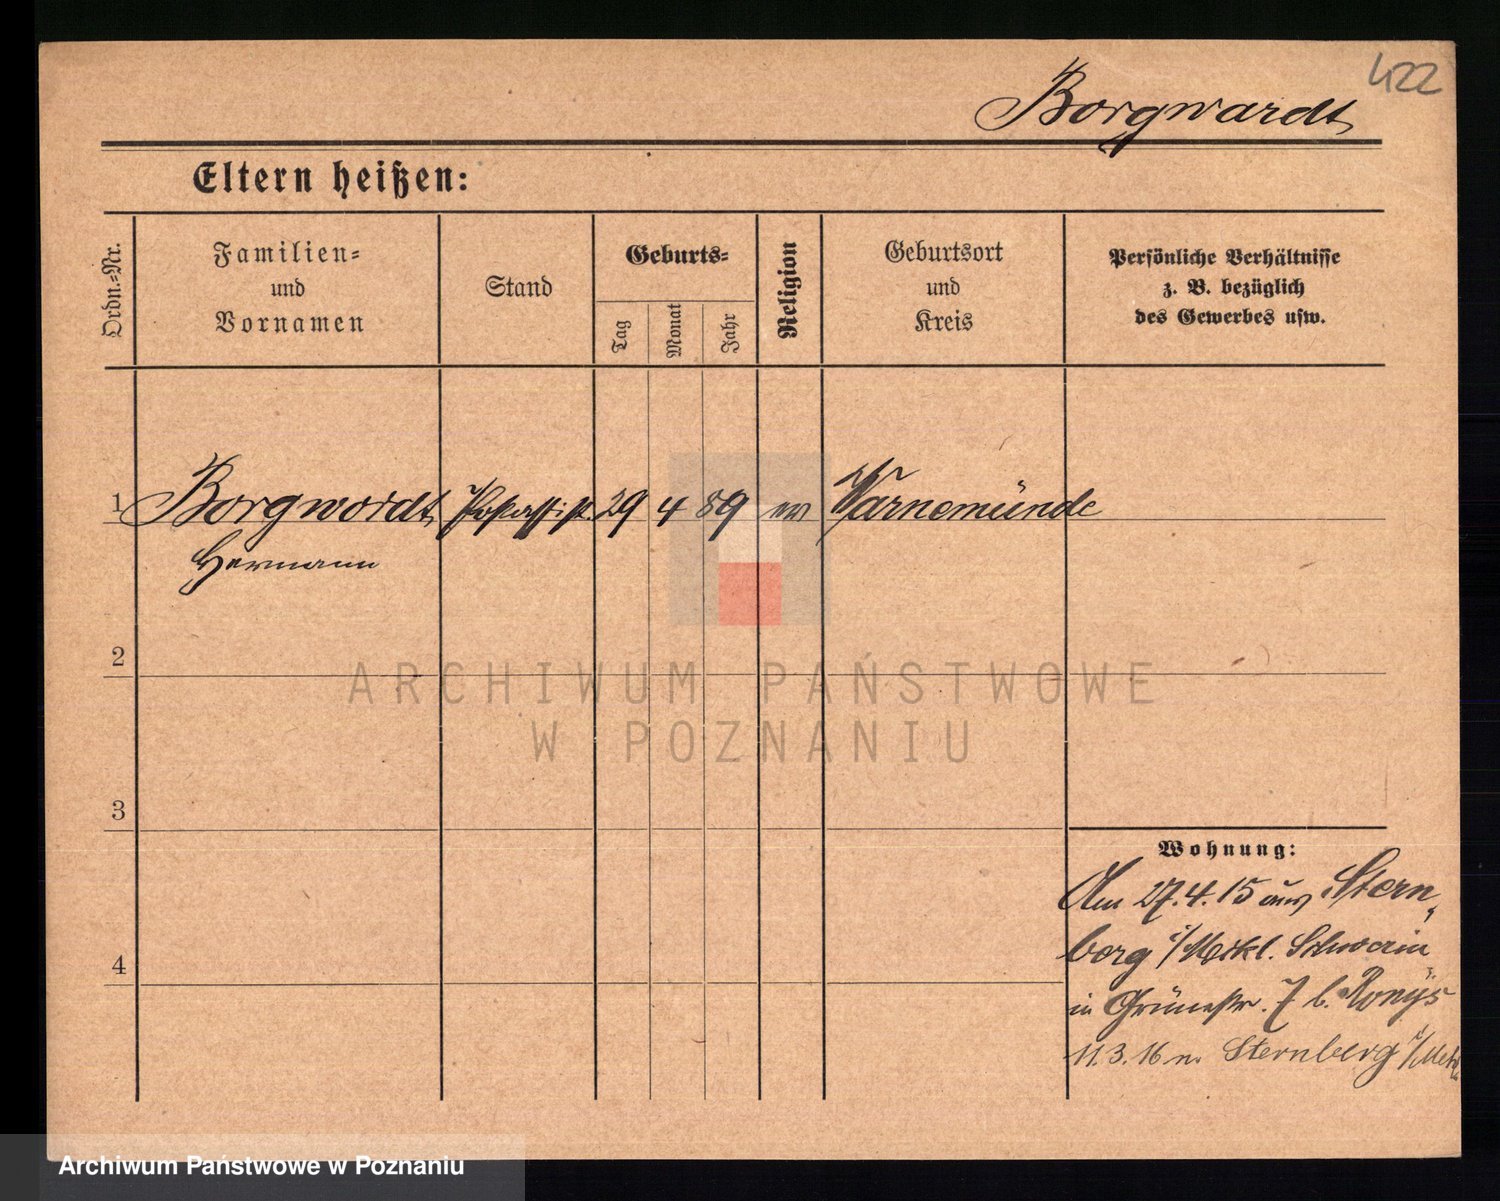 422
Borgwardt
Eltern heißen:
Ordn.-Nr.
Familien-
und
Vornamen
Stand
Geburts-
Tag
Monat
Jahr
Religion
Geburtsort
und
Kreis
Persönliche Verhältnisse
z. B. bezüglich
des Gewerbes usw.
1 Borgwardt Postassist. 29 4 89 ev Warnemünde
Hermann
2
3
4
Wohnung:
Am 27.4.15 aus Stern-
berg i/Mekl. Schwerin
in Grünestr. 7 b.
11.3.16 n. Sternberg i/Mekl.
ARCHIWUM PAŃSTWOWE
W POZNANIU
Archiwum Państwowe w Poznaniu